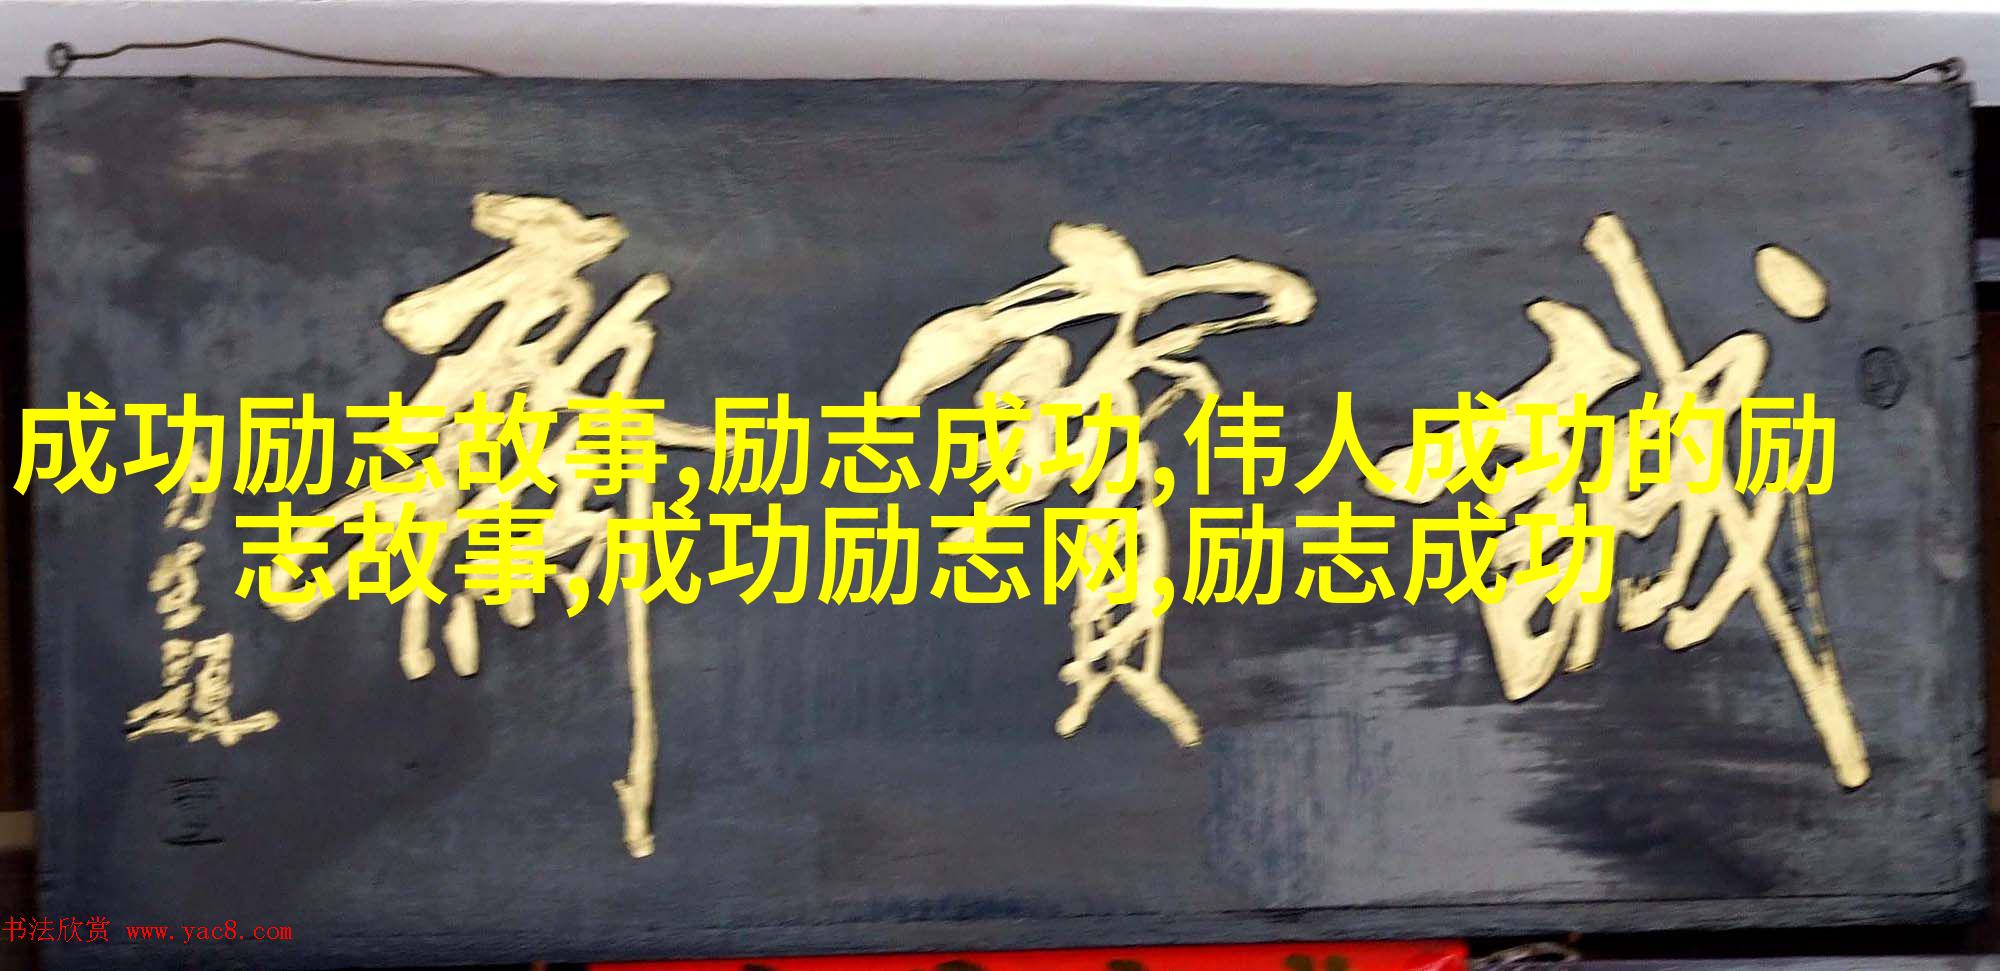 誠寶齋
成功励志故事,励志成功,伟人成功的励
志故事,成功励志网,励志成功
书法欣赏 www.yac8.com